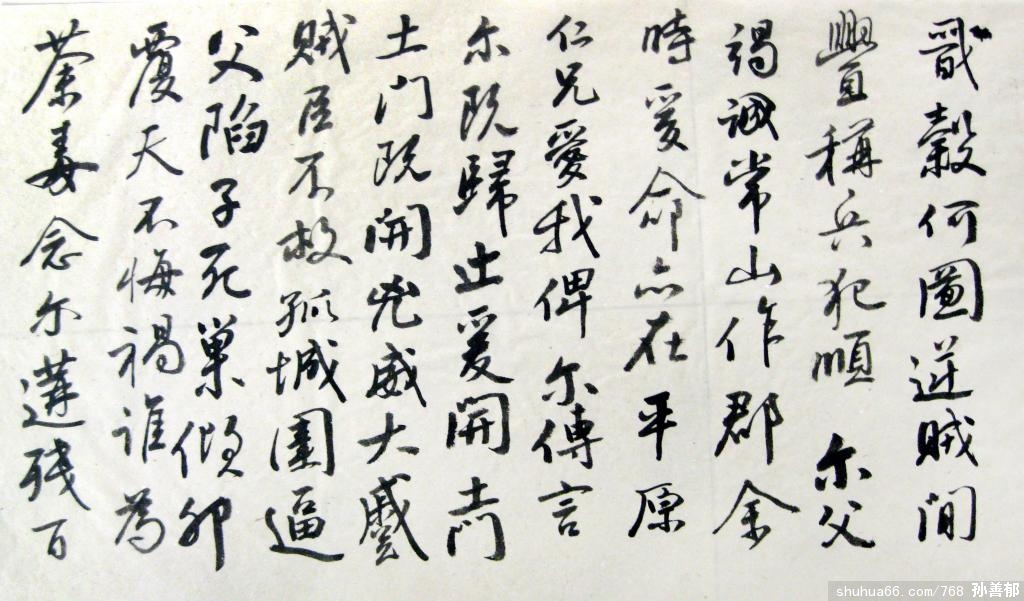 戩穀何圖逆賊閒
舋稱兵犯順 尔父
竭誠常山作郡余
時受命亦在平原
仁兄愛我俾尔傳言
尔既歸止爰開土門
土門既開兇威大蹙
賊臣不救孤城圍逼
父陷子死巢傾卵
覆天不悔禍誰為
荼毒念尔遘殘百
shuhua66.com/768 孙善郁